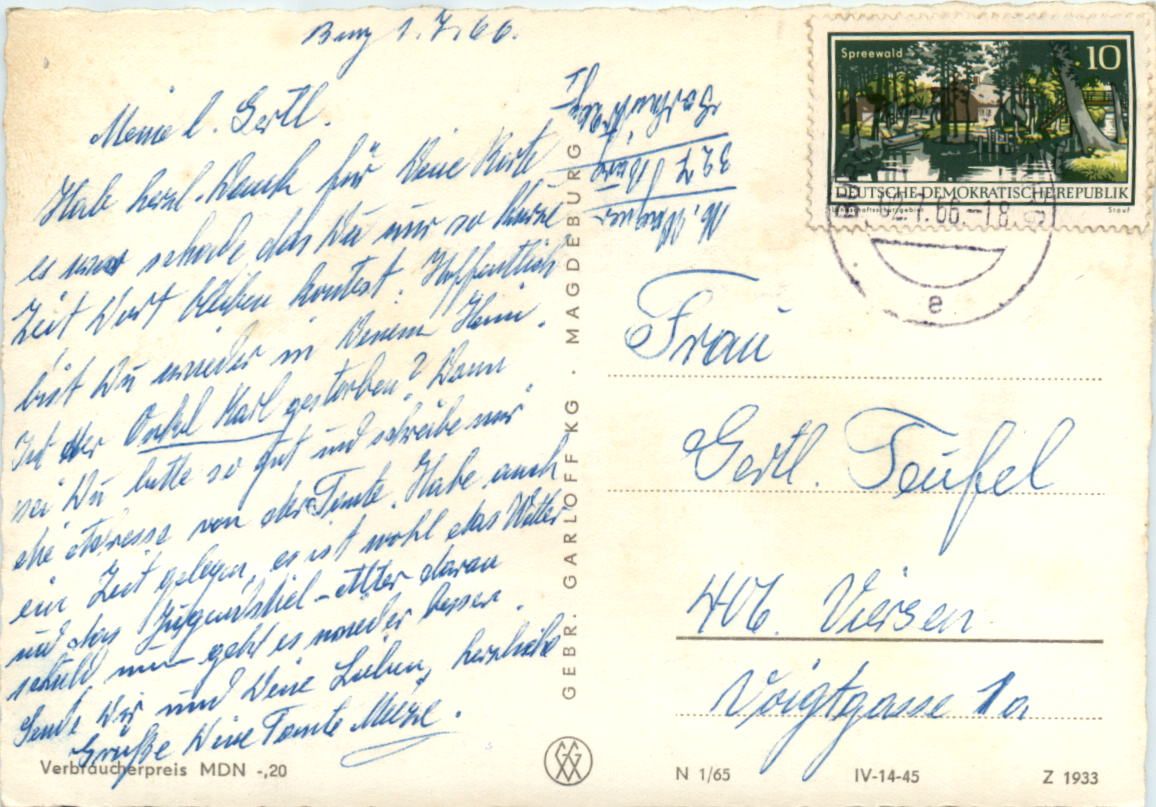 Burg 1.7.66.
Meine l. Gertl.
Hab herzl. Dank für Deine Karte
es war schade das Du nur so kurze
Zeit dort bleiben kontest. Hoffentlich
bist Du wieder in Deinem Heim.
Ist der Onkel Karl gestorben? Dann
sei Du bitte so gut und schreibe mir
die Adresse von der Tante. Habe auch
ein Zeit gelegen, es ist wohl das Wetter
und das Jugendstiel-Alter daran
schuld nun geht es wieder besser.
Sende Dir und Deine Lieben, herzliche
Grüße Deine Tante
M. Wagner
327 Burg
Verbraucherpreis MDN -,20
GEBR. GARLOFF KG · MAGDEBURG
Spreewald
10
DEUTSCHE DEMOKRATISCHE REPUBLIK
Landschaftsschutzgebiet Stauf
66.-18
e
Frau
Gertl. Teufel
406 Viersen
Voigtgasse 1a
N 1/65 IV-14-45 Z 1933